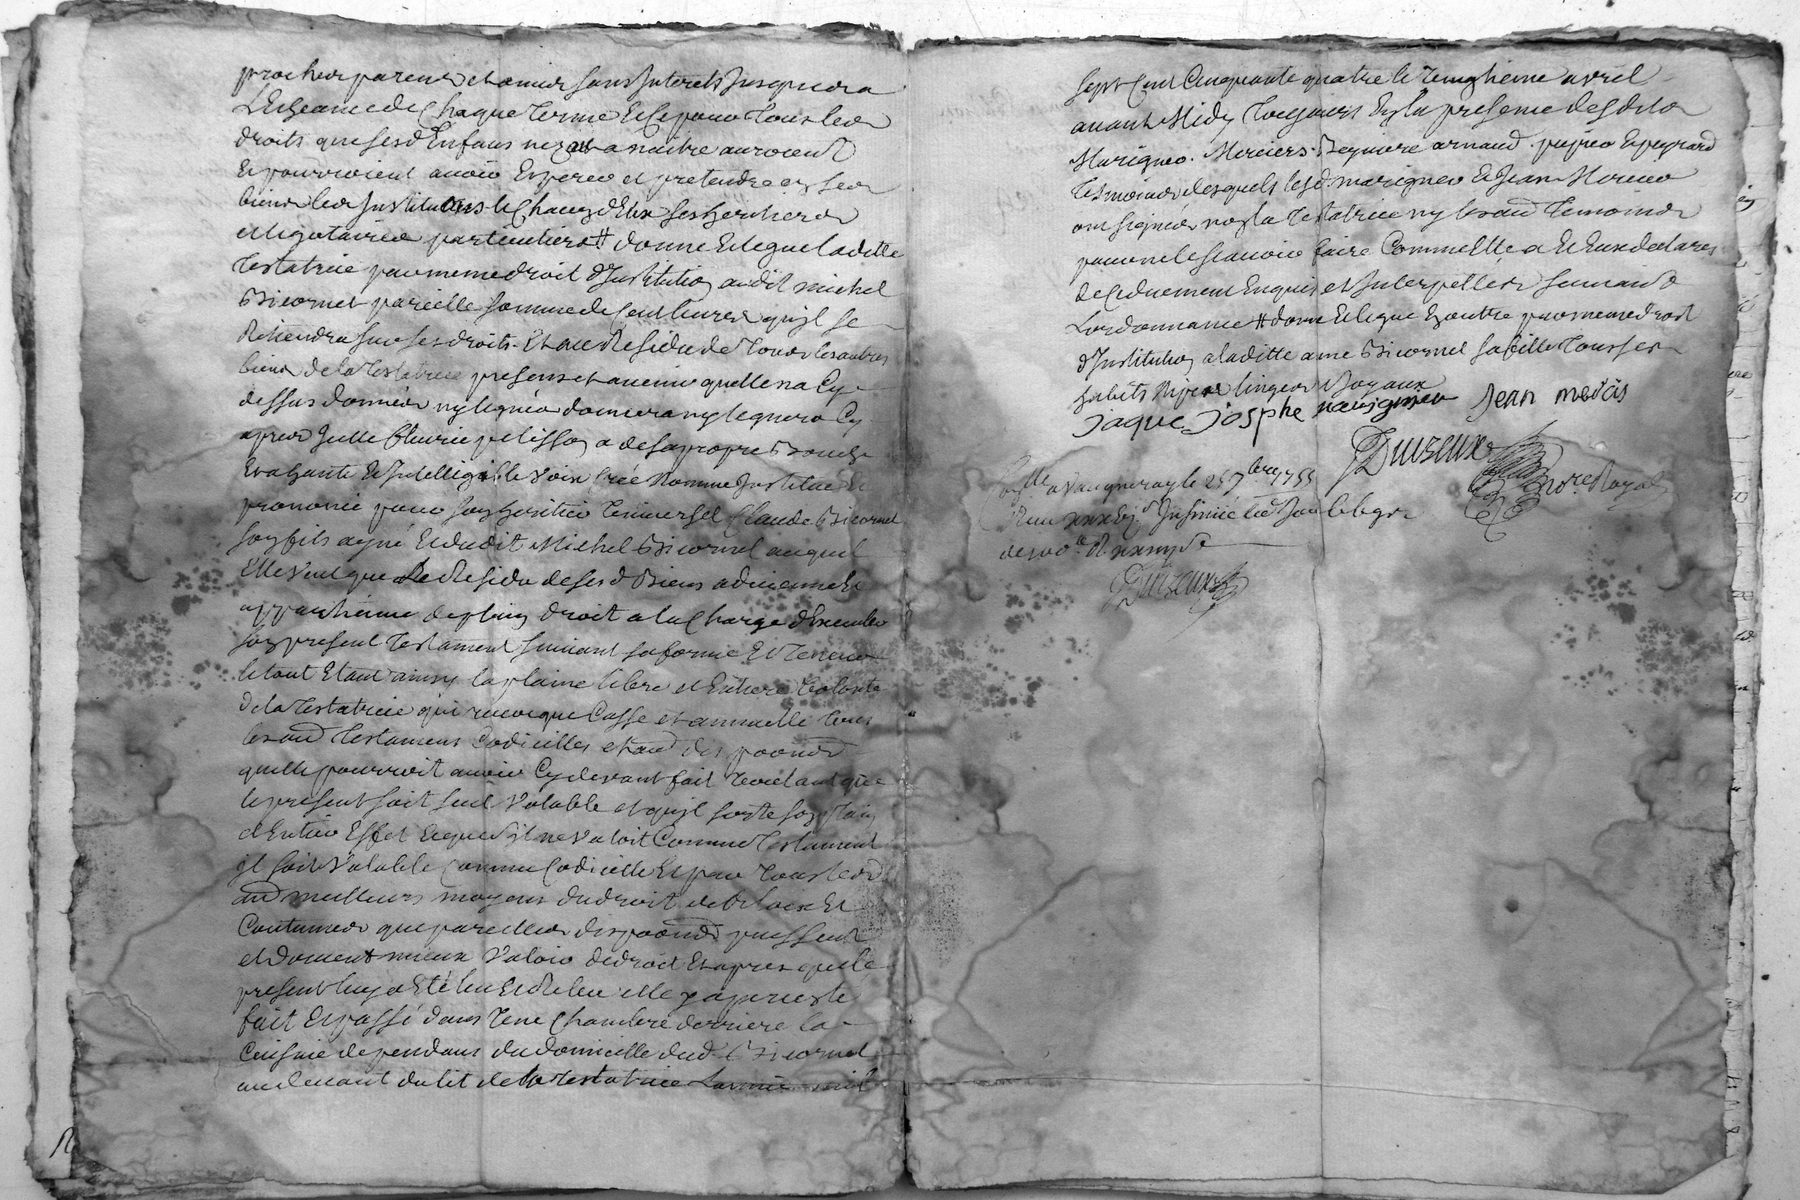 proches parens et amies sans Interets Jusques a
L'Echeance de Chaque Terme Et Ce pour Tous les
droits que sesd Enfans nez et a naitre auroient
Et pourroient avoir Esperer et pretendre en ses
biens les Instituant le Chacun d'Eux ses heritiers
et legataires particuliers # donne Et legue laditte
Testatrice par meme droit d'Institution audit michel
Bicornet pareille somme de Cent livres qu'jl se
Retiendra sur ses droits. Et au Residu de Tous les autres
biens de la Testatrice presens et avenir quelle n'a Cy
dessus donnés ny legués donnera ny leguera Cy
apres Jcelle fleurie pelisson a de sa propre Bouche
Evahante Et Intelligible Voix Créé Nomme Institue Et
prononcé pour son heritier Universel Claude Bicornet
son fils ayné Et dudit Michel Bicornet auquel
Elle Veut que Le Residu de sesd Biens advienne Et
appartienne de plain droit a la Charge d'Executer
son present Testament suivant sa forme Et Teneur
le tout Etant ainsy la plaine libre et Entiere Volonté
de la Testatrice qui revoque Casse et annulle Tous
les aud Testamens Codicilles et aud disp̃oons
quelle pourroit avoir Cy devant fait Voulant que
le present soit seul Valable et qu'jl sorte son plain
et Entier Effet Et que s'jl ne Valoit Comme Testament
jl soit Valable Comme Codicille Et par Tous les
aud meilleurs moyens du droit de Loix Et
Coutumes que pareilles disp̃oons puissent
et doivent mieux Valoir de droit Et apres que le
present luy a Eté leu Et Releu elle y a persisté
fait Et passé dans Une Chambre derriere la
Cuisine dependant du domicille dud Bicornet
au devant du lit de la Testatrice L'année mil
sept Cent Cinquante quatre le avril
avant Midy Toujours En la presence desdits
Marignier. Merciers. arnaud. Et peyrard
Tesmoins desquels lesd marignier Et Jean Mercier
ont signés non la Testatrice ny les aud Temoins
pour ne le scavoir faire Comme Elle a Et Eux declarés
de Ce duement Enquis et Interpellés suivant
L'ordonnance # donne Et legue En outre par meme droit
d'Institution a laditte ane Bicornet sa fille Tous ses
habits linges Joyaux
jaque josphe marignier Jean mercis
Duizeux Nore. Royal
Conlle a Vaugneray le 25 7bre 1755
Duizeux